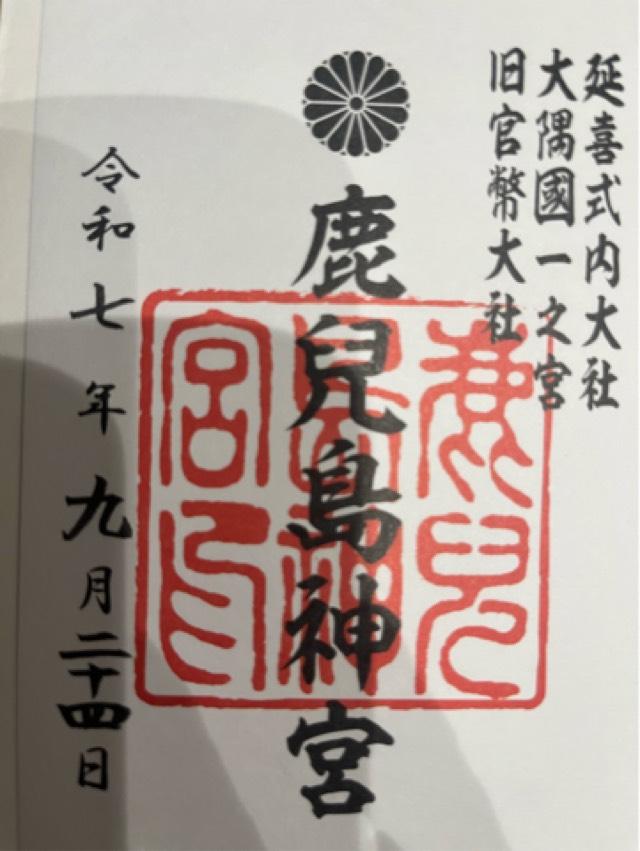 延喜式内大社
大隅國一之宮
旧官幣大社
鹿兒島神宮
鹿兒
島神
宮印
令和七年九月二十四日